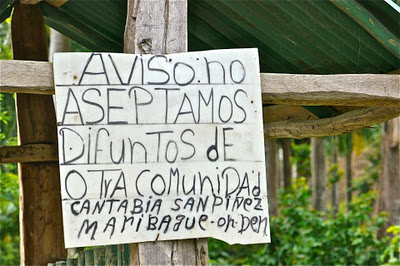 AVISO: no
ASEPTAMOS
DIFUNTOS dE
OTrA COMUNIDAd
CANTABIA SAN PINEZ
MARIBAGUE-OR-DEN